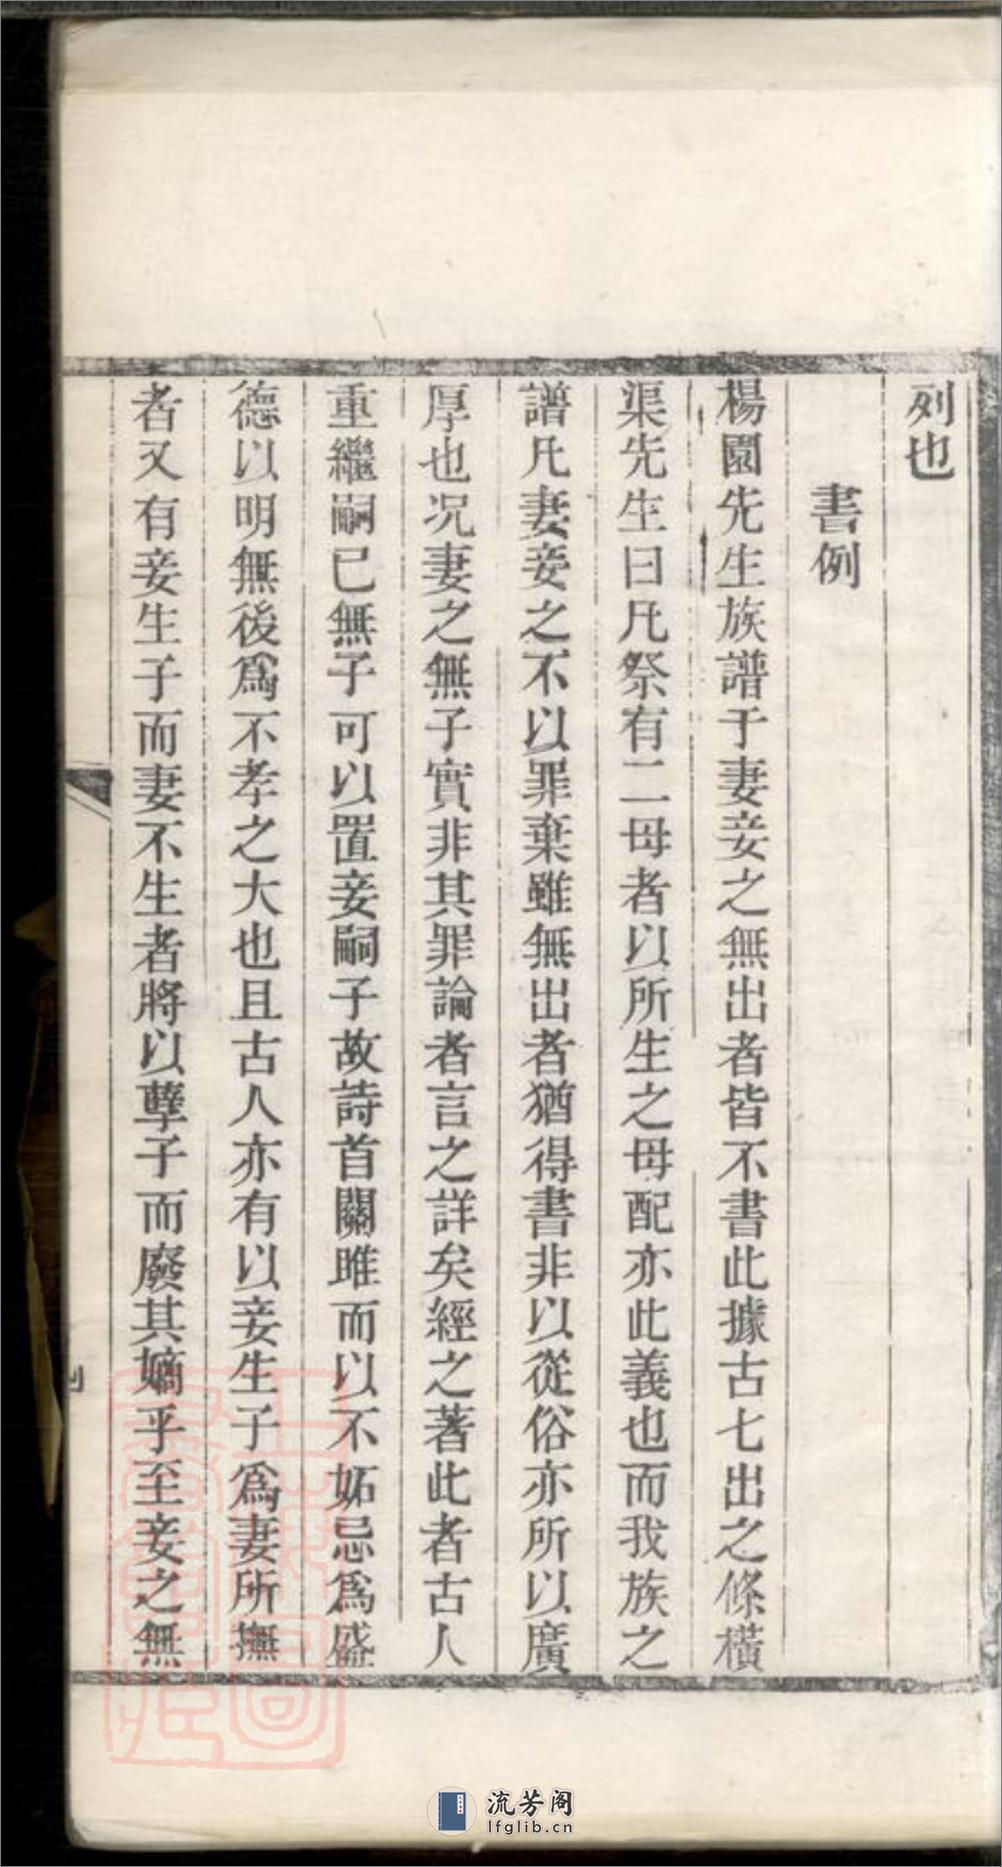 列也
書例
楊園先生族譜于妻妾之無出者皆不書此據古七出之條橫
渠先生曰凡祭有二母者以所生之母配亦此義也而我族之
譜凡妻妾之不以罪棄雖無出者猶得書非以從俗亦所以廣
厚也况妻之無子實非其罪論者言之詳矣經之著此者古人
重繼嗣已無子可以置妾嗣子故詩首關雎而以不妬忌爲盛
德以明無後爲不孝之大也且古人亦有以妾生子爲妻所撫
者又有妾生子而妻不生者將以孽子而廢其嫡乎至妾之無
流芳阁
lfglib.cn